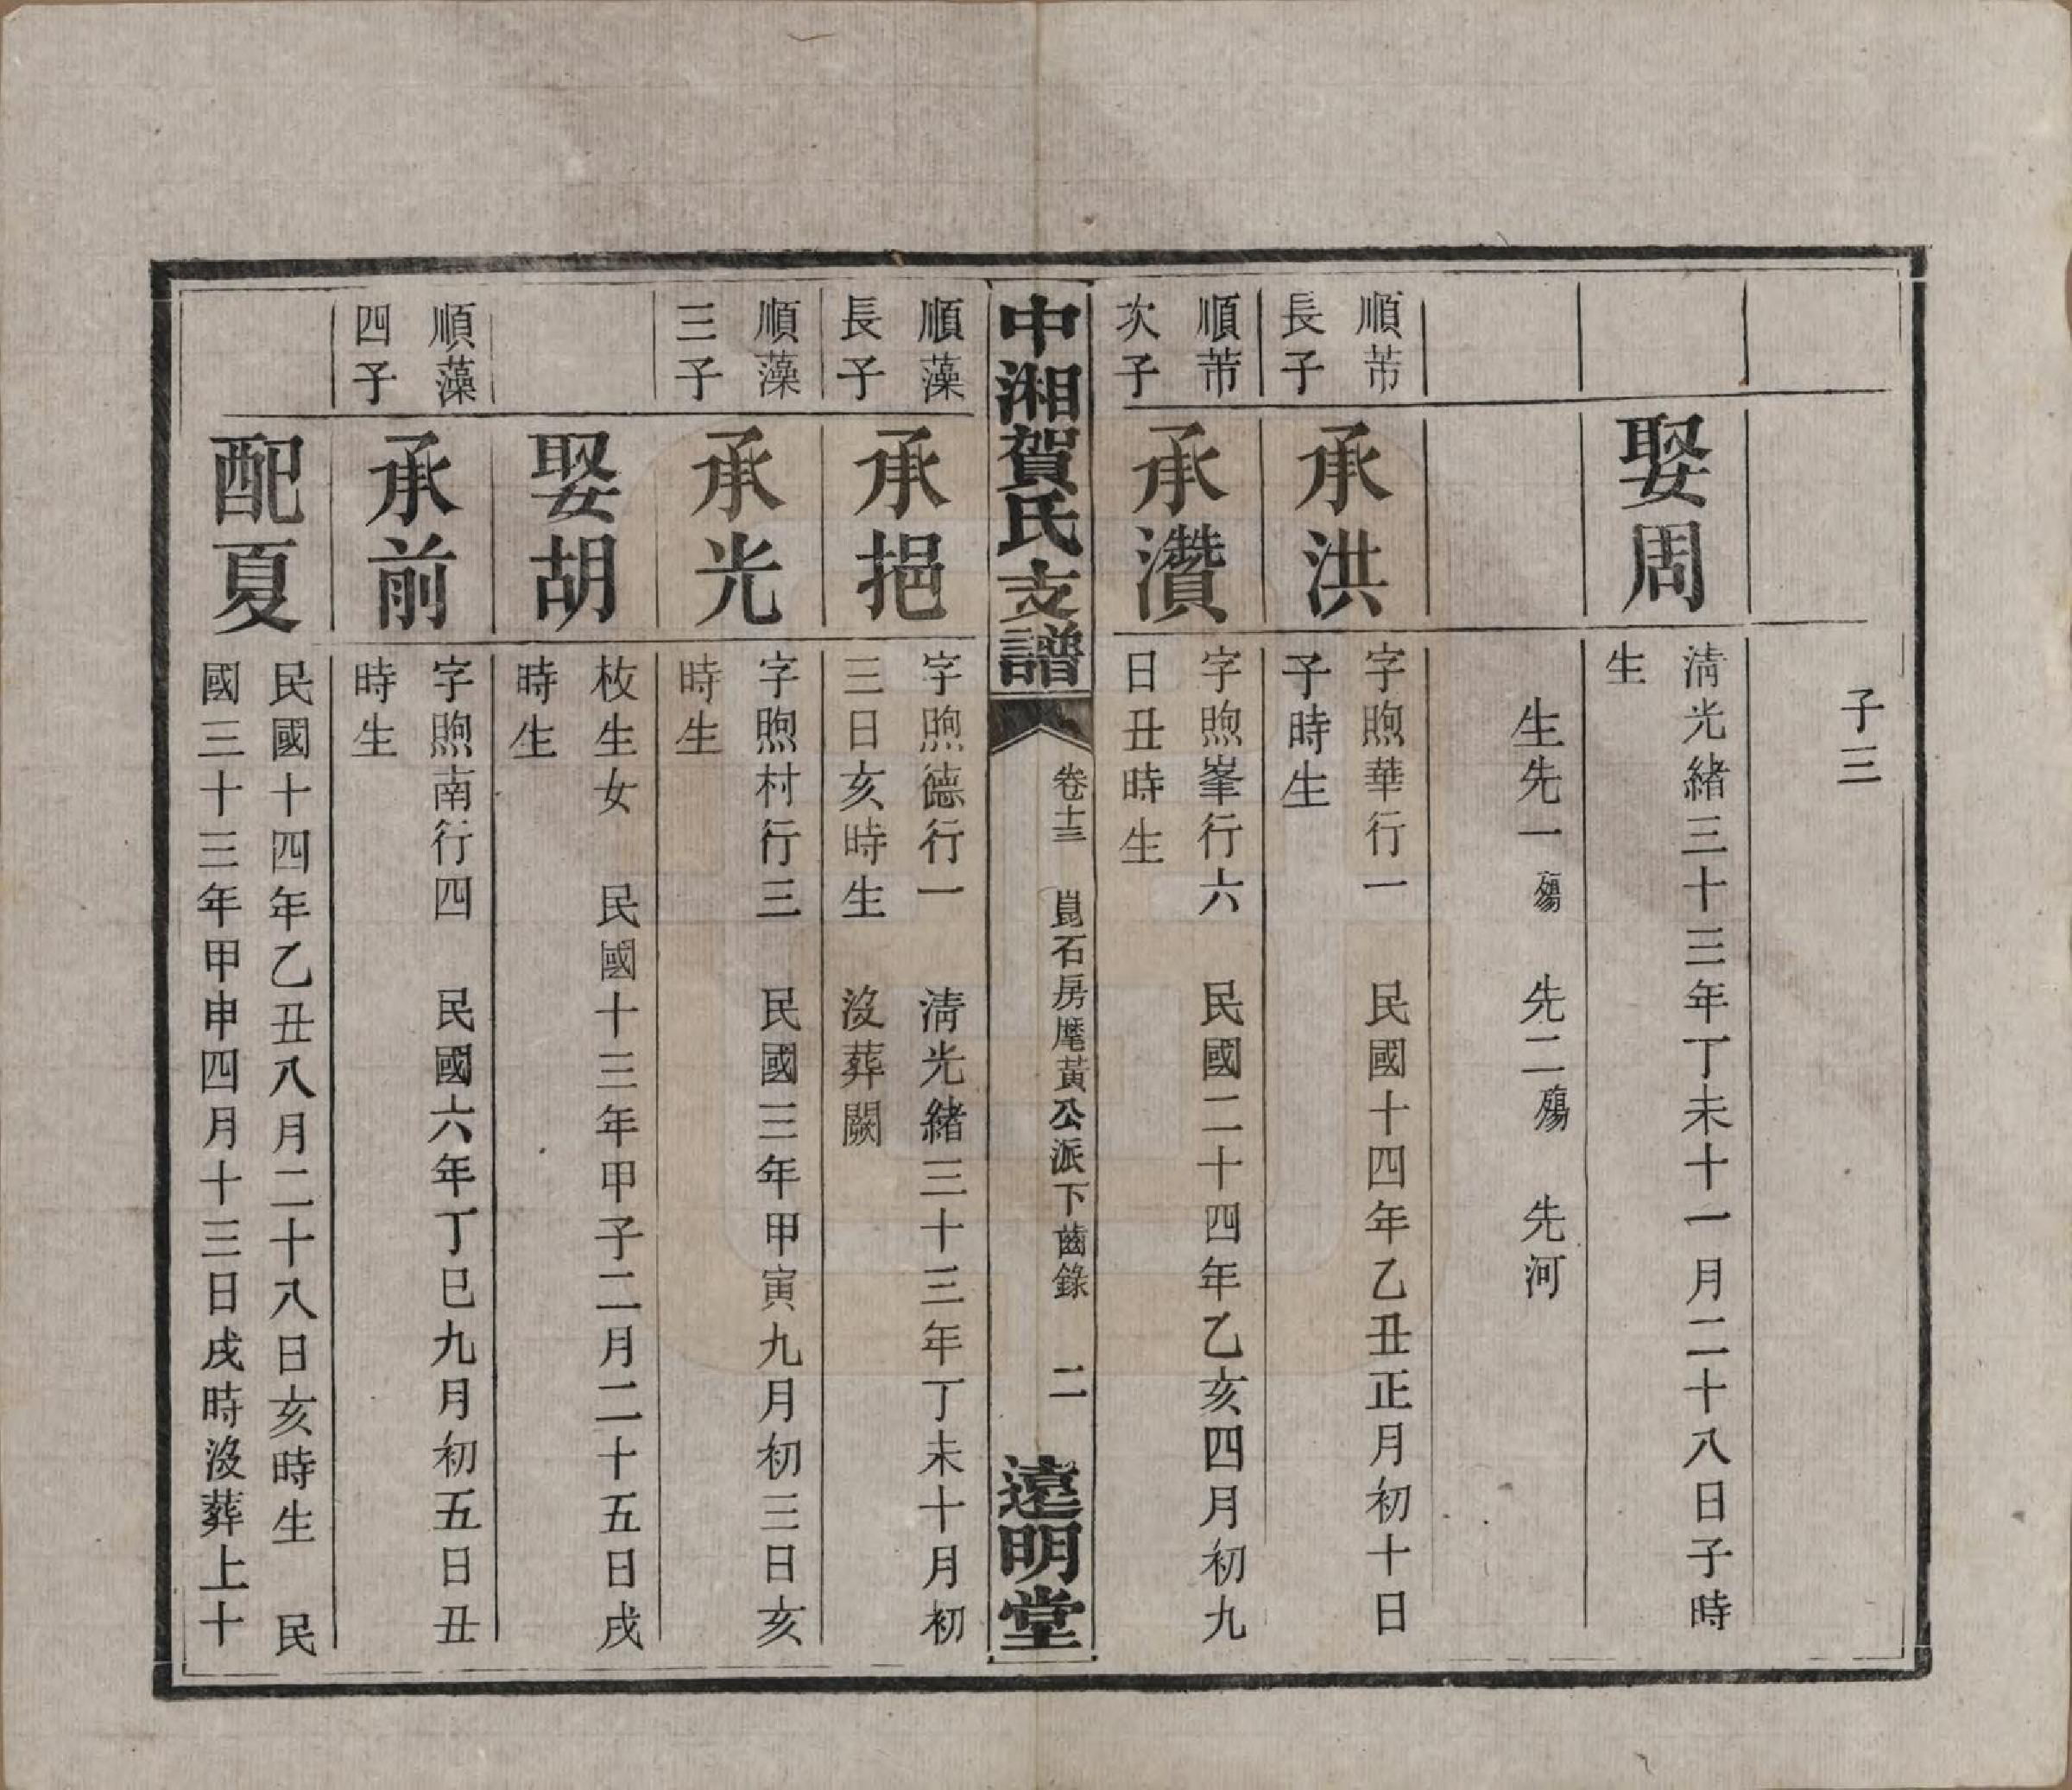 子三
娶周
清光緒三十三年丁未十一月二十八日子時
生
生先一殤　先二殤　先河
順芾
長子
承洪
字煦華行一　民國十四年乙丑正月初十日
子時生
順芾
次子
承瓚
字煦峯行六　民國二十四年乙亥四月初九
日丑時生
中湘賀氏支譜
卷十三　崑石房麾黃公派下齒錄　二
遠明堂
順藻
長子
承挹
字煦德行一　清光緒三十三年丁未十月初
三日亥時生　沒葬闕
順藻
三子
承光
字煦村行三　民國三年甲寅九月初三日亥
時生
娶胡
枚生女　民國十三年甲子二月二十五日戌
時生
順藻
四子
承前
字煦南行四　民國六年丁巳九月初五日丑
時生
配夏
民國十四年乙丑八月二十八日亥時生　民
國三十三年甲申四月十三日戌時沒葬上十